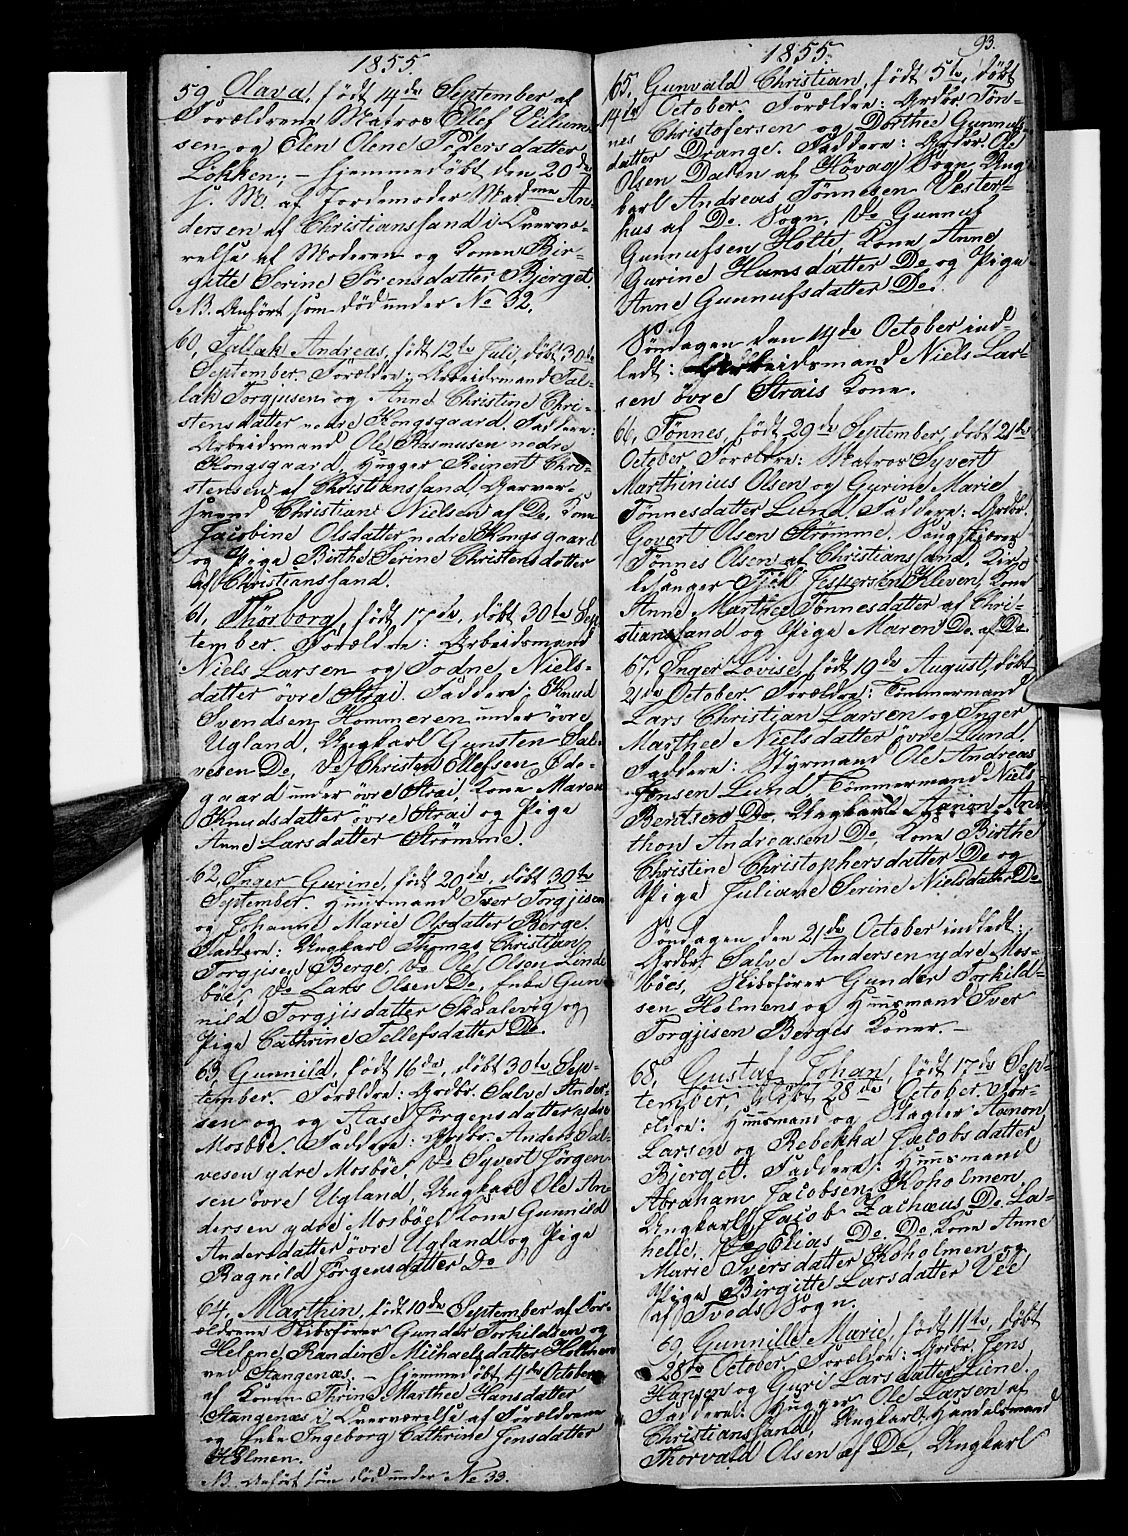 1855.
59, Olava, født 14de September af
Forældrene Matros Ellef Villum-
sen og Elen Olene Pedersdatter
Løkken; – hjemmedøbt den 20de
s. M. af Jordemoder Madme An-
dersen af Christianssand i Overvæ-
relse af Moderen og Konen Bir-
gitte Serine Sørensdatter Bjerget.
NB. Anført som død under No 32.
60, Tallak Andreas, født 12te Juli, døbt 30te
September. Forældre: Arbeidsmand Tal-
lak Torgjusen og Anne Christine Chri-
stensdatter nedre Kongsgaard. Faddere:
Arbeidsmand Ole Rasmusen nedre
Kongsgaard, Hugger Reinert Chri-
stensen af Christianssand, Garver-
svend Christian Nielsen af Do, Kone
Jacobine Olsdatter nedre Kongsgaard
og Pige Birthe Serine Christensdatter
af Christianssand.
61, Thorborg, født 17de, døbt 30te Sep-
tember. Forældre: Arbeidsmand
Niels Larsen og Todne Niels-
datter øvre Strai. Faddere: Knud
Svendsen Hommeren under øvre
Ugland, Ungkarl Gunsten Sal-
vesen Do, Do Christen Ollefsen Øde-
gaard under øvre Strai, Kone Maren
Knudsdatter øvre Strai og Pige
Anne Larsdatter Strømme.
62, Inger Gurine, født 20de, døbt 30te
September. Huusmand Iver Torgjisen
og Johanne Marie Olsdatter Berge.
Faddere: Ungkarl Thomas Christian
Torgjisen Berge, Do Ole Olsen Linde-
bøe, Do Lars Olsen Do, Enke Gun-
nild Torgjisdatter Skaalevig og
Pige Cathrine Tellefsdatter Do.
63, Gunnild, født 16de, døbt 30te Sep-
tember. Forældre: Grdbr. Salve Ander-
sen og og Aase Jørgensdatter ydre
Mosbøe. Faddere: Grdbr. Anders Sal-
vesen ydre Mosbøe, Do Syvert Jørgen-
sen øvre Ugland, Ungkarl Ole An-
dersen ydre Mosbøe, Kone Gunnild
Andersdatter øvre Ugland og Pige
Ragnild Jørgensdatter Do
64, Marthin, født 10de September af For-
ældrene Skibsfører Gunder Torkildsen og
Helene Randine Michaelsdatter Holmen
ved Stangenæs. – hjemmedøbt 4de October
af Konen Thrine Marthee Hansdatter
Stangenæs i Overværelse af Forældrene
og Enke Ingeborg Cathrine Jensdatter
Holmen.
NB. Anført som død under No 33.
1855.
93.
65, Gunvald Christian, født 5te, døbt
14de October. Forældre: Grdbr Tøn-
nes Christofersen og Dorthee Gunnufs-
datter Drange. Faddere: Grdbr. Ole
Olsen Dalen af Høvaag Sogn, Ung-
karl Andreas Tønnesen Vester-
hus af Do. Sogn, Do Gunnuf
Gunnufsen Holte, Kone Anne
Gurine Hansdatter Do og Pige
Anne Gunnufsdatter Do.
Søndagen den 14de October ind-
ledt: Arbeidsmand Niels Lar-
sen øvre Strais Kone.
66, Tønnes, født 29de September, døbt 21de
October. Forældre: Matros Syvert
Marthinius Olsen og Gurine Marie
Tønnesdatter Lund. Faddere: Grdbr.
Govert Olsen Strømme, Saugskjærer
Tønnes Olsen af Christianssand, Kirke-
sanger Jespersen Kleven, Kone
Anne Marthee Tønnesdatter af Chri-
stianssand og Pige Maren Do. af Do
67, Inger Lovise, født 19de August, døbt
21de October. Forældre: Tømmermand
Lars Christian Larsen og Inger
Marthee Nielsdatter øvre Lund.
Faddere: Styrmand Ole Andreas
Jensen Lund, Tømmermand Niels
Berntsen Do, Ungkarl Aanon An-
thon Andreasen Do, Kone Birthe
Christine Christophersdatter Do og
Pige Juliane Serine Nielsdatter Do
Søndagen den 21de October indledt:
Grdbr. Salve Andersen ydre Mos-
bøes, Skibsfører Gunder Torkild-
sen Holmens og Huusmand Iver
Torgjisen Berges Koner. –
68, Gustaf Johan, født 17de Sep-
tember, døbt 28de October. For-
ældre: Huusmand og Aanon
Larsen og Rebekka Jacobsdatter
Bjerget. Faddere: Huusmand
Abraham Jacobsen Koholmen,
Ungkarl Jacob Zachæus Do. La-
helle, Do Elias Do. Do, Kone Anne
Marie Iversdatter Koholmen og
Pige Birgitte Larsdatter Vee
af Tveds Sogn.
69, Gunnille Marie, født 11te, døbt
28de October. Forældre: Grdbr. Jens
Hansen og Guri Larsdatter Liene.
Faddere: Hugger Ole Larsen af
Christianssand, Ungkarl, Handelsmand
Thorvald Olsen af Do, Ungkarl